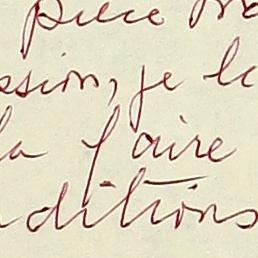 pièce
ssion, je le
la faire
ditions